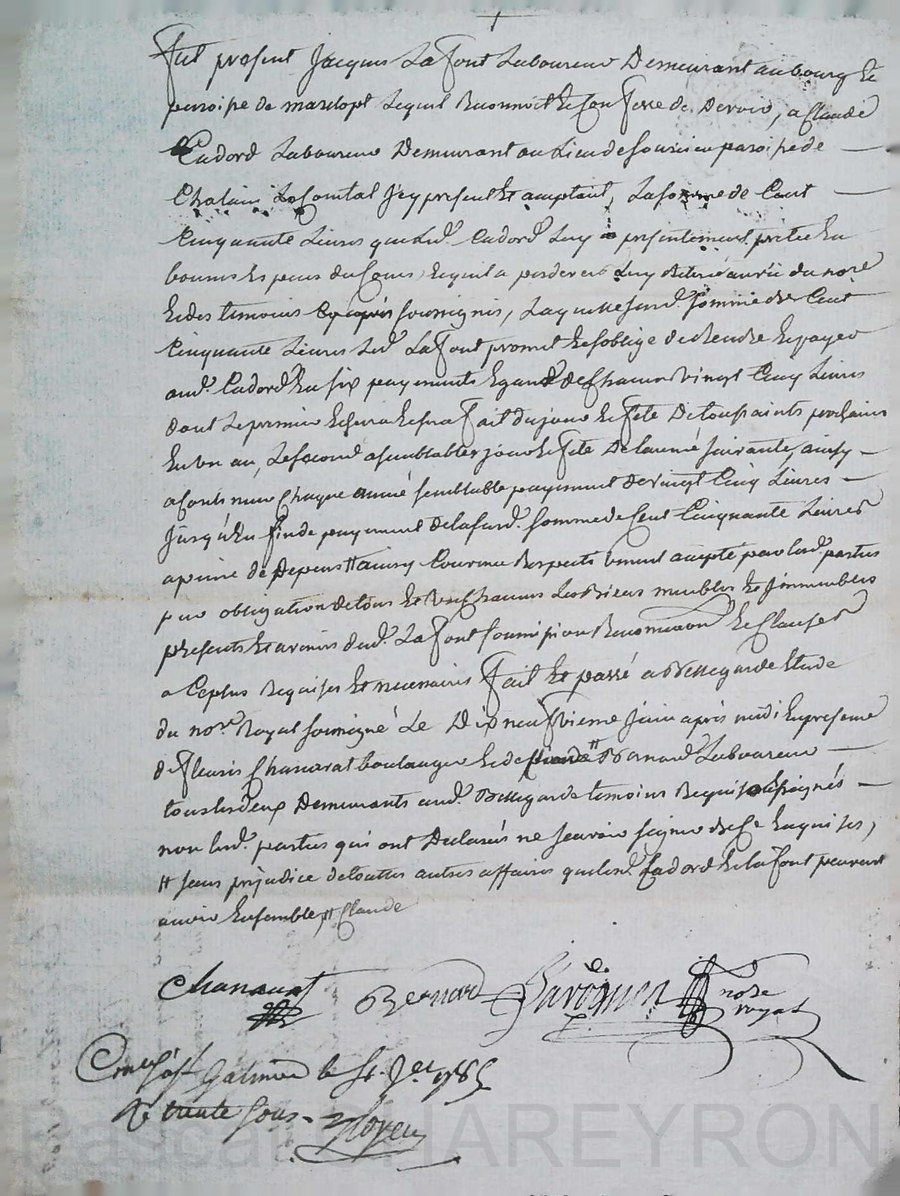 Fut présent Jacques Lafont Laboureur Demeurant au bourg Et
paroisse de Lequel Reconnoit Et Confesse de Devoir, a Claude
Cadord Laboureur Demeurant au Lieu de paroisse de
Chalain Le Comtal Jcy présent Et acceptant, La somme de Cent
Cinquante Livres que Led. Cadord Luy a présentement pretée En
bources Especes du Cours, Et quil a pardevers Luy Retirée au vû du nore
Et des temoins Cy après soussignés, Laquelle susd. somme de Cent
Cinquante Livres Led. Lafont promet Et soblige de Rendre Et payer
aud. Cadord En six payements Egaux de Chacun Vingt Cinq Livres
dont Le premier Echerra Et sera fait du jour Et fête De toussaints prochain
En un an, Le second a semblable jour Et fête De lannée suivante, ainsy
a Continuer Chaque année semblable payement de vingt Cinq Livres
Jusqu'à En fin de payement de la susd. somme de Cent Cinquante Livres
a peine de Depens # ainsy Convenu Respectivement accepté par lesd. parties
par obligation de tous Et Uns Chacuns Les Biens meubles Et Jmmeubles
présents Et avenirs dud. Lafont soumission Renonciation Et Clauses
a Ce plus Requises Et necessaires fait Et passé a Bellegarde Etude
du nore Royal soussigné Le Dix neufvieme Juin après midi En présence
de fleuris Chanavat boulanger Et de # Bernard Laboureur
tous les deux Demeurants aud. Bellegarde temoins Requis Et soussignés
non Lesd. parties qui ont Déclarés ne scavoir signer de Ce Enquises,
# sans préjudice de toutes autres affaires que Lesd. Cadord Et Lafont peuvent
avoir Ensemble # Claude
Chanavat Bernard nore
royal
Con.lé à St Galmier le 1er Jet 1785
R. trente sous
Pascal CHAREYRON